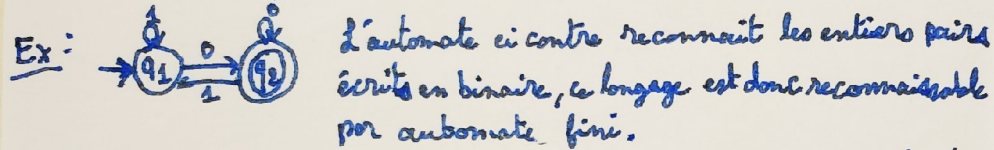 Ex :
1 0
q1 0 q2
1
L'automate ci contre reconnait les entiers pairs
écrits en binaire, ce langage est donc reconnaissable
par automate fini.